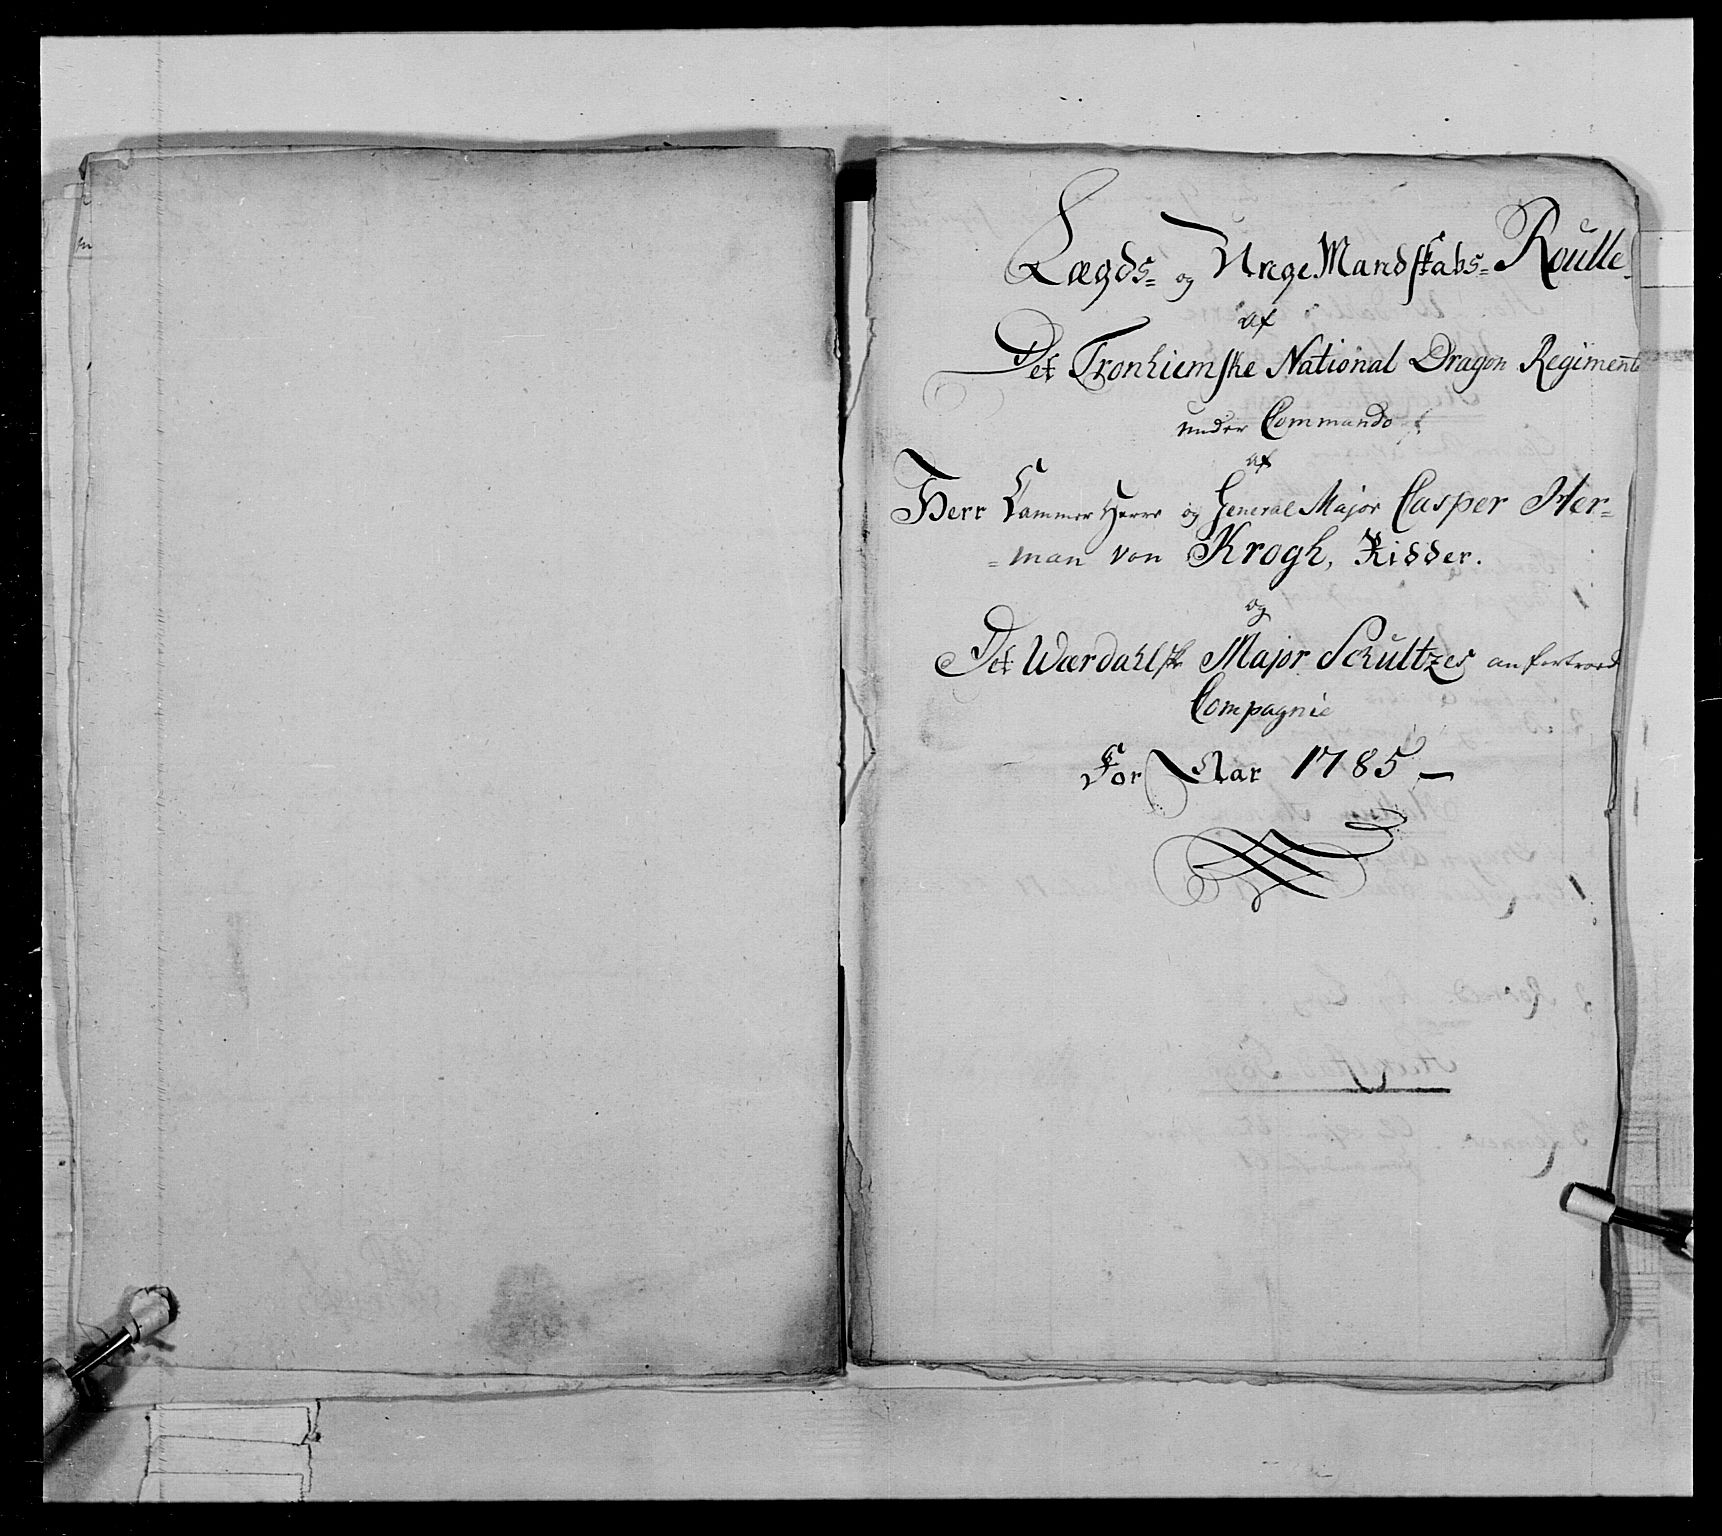 Lægds= og Unge Mandskabs= Roulle
af
Det Tronhiemske National Dragon Regiment
under Commando
af
Herr Cammer Herre og General Major Casper Her=
=man von Krogh, Ridder.
og
Det Wærdahlske Major Schultzes anfortroed
Compagnie
For Aar 1785 —